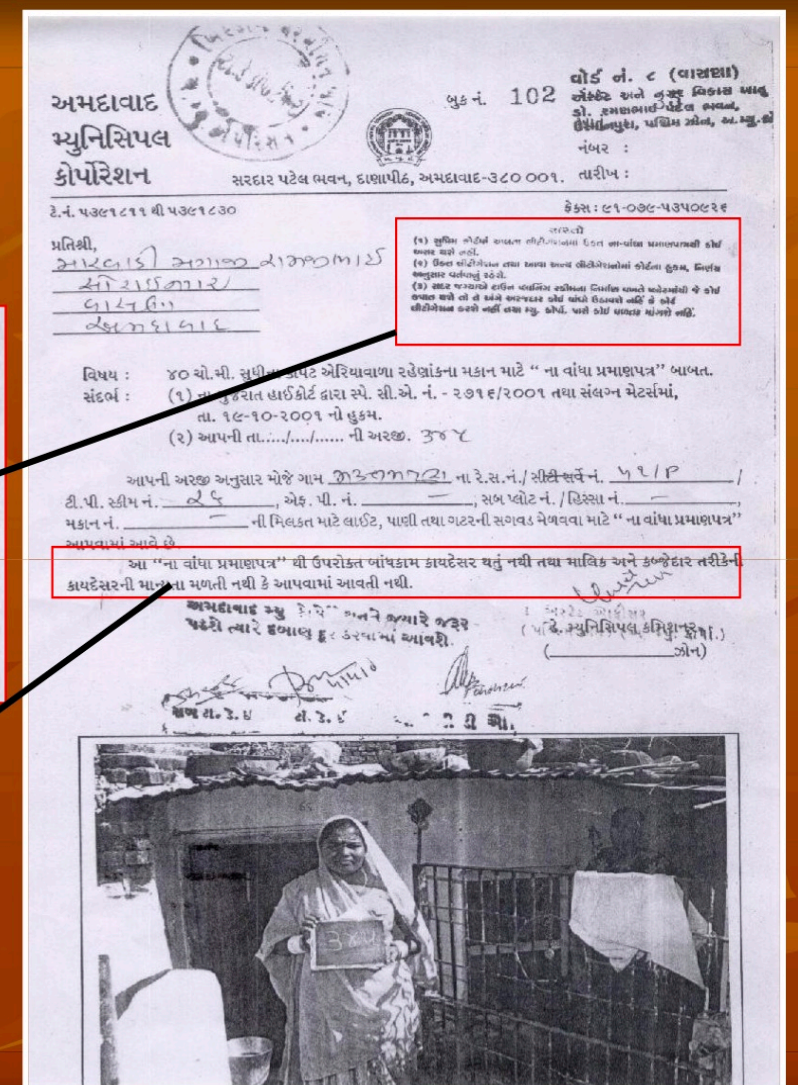 અમદાવાદ
મ્યુનિસિપલ
કોર્પોરેશન
બુક નં. 102
વોર્ડ નં. ૮ (વાસણા)
એસ્ટેટ અને નગર વિકાસ ખાતુ
ડો. રમણભાઈ પટેલ ભવન,
ઉસ્માનપુરા, પશ્ચિમ ઝોન, અ.મ્યુ.કો
નંબર :
તારીખ :
સરદાર પટેલ ભવન, દાણાપીઠ, અમદાવાદ-૩૮૦ ૦૦૧.
ટે.નં. ૫૩૯૧૮૧૧ થી ૫૩૯૧૮૩૦
ફેક્સ : ૯૧-૦૭૯-૫૩૫૦૯૨૬
પ્રતિશ્રી,
મારવાડી મગાજી રામજીભાઈ
સોરાઈનગર
વાસણા
અમદાવાદ
શરતો
(૧) સુપ્રિમ કોર્ટમાં ચાલતા લીટીગેશનમાં ઉક્ત ના-વાંધા પ્રમાણપત્રથી કોઈ
અસર થશે નહીં.
(૨) ઉક્ત લીટીગેશન તથા આવા અન્ય લીટીગેશનોમાં કોર્ટના હુકમ, નિર્ણય
અનુસાર વર્તવાનું રહેશે.
(૩) સદર જગ્યાએ ટાઉન પ્લાનિંગ સ્કીમના નિર્માણ બાબતે પ્લોટમાંથી જે કોઈ
કપાત થશે તો તે અંગે અરજદાર કોઈ વાંધો ઉઠાવશે નહિં કે કોઈ
લીટીગેશન કરશે નહીં તથા મ્યુ. કોર્પો. પાસે કોઈ વળતર માંગશે નહિં.
વિષય : ૪૦ ચો.મી. સુધીના કાર્પેટ એરિયાવાળા રહેણાંકના મકાન માટે “ ના વાંધા પ્રમાણપત્ર” બાબત.
સંદર્ભ : (૧) ના ગુજરાત હાઈકોર્ટ દ્વારા સ્પે. સી.એ. નં. - ૨૭૧૬/૨૦૦૧ તથા સંલગ્ન મેટર્સમાં,
તા. ૧૯-૧૦-૨૦૦૧ નો હુકમ.
(૨) આપની તા...../..../...... ની અરજી. ૩૪૫
આપની અરજી અનુસાર મોજે ગામ ના રે.સ.નં./ સીટી સર્વે નં. ૫૧/P /
ટી.પી. સ્કીમ નં. ૨૬ , એફ. પી. નં. – , સબ પ્લોટ નં. / હિસ્સા નં. – ,
મકાન નં. – ની મિલકત માટે લાઈટ, પાણી તથા ગટરની સગવડ મેળવવા માટે “ ના વાંધા પ્રમાણપત્ર”
આપવામાં આવે છે.
આ “ના વાંધા પ્રમાણપત્ર” થી ઉપરોક્ત બાંધકામ કાયદેસર થતું નથી તથા માલિક અને કબ્જેદાર તરીકેની
કાયદેસરની માન્યતા મળતી નથી કે આપવામાં આવતી નથી.
અમદાવાદ મ્યુ જ્યારે જરૂર
પડશે ત્યારે દબાણ દૂર કરવામાં આવશે.
ડે. મ્યુનિસિપલ કમિશનર
( ઝોન)
સબ ટા. ડે. ઈ ટા. ડે. ઈ
૩૪૫